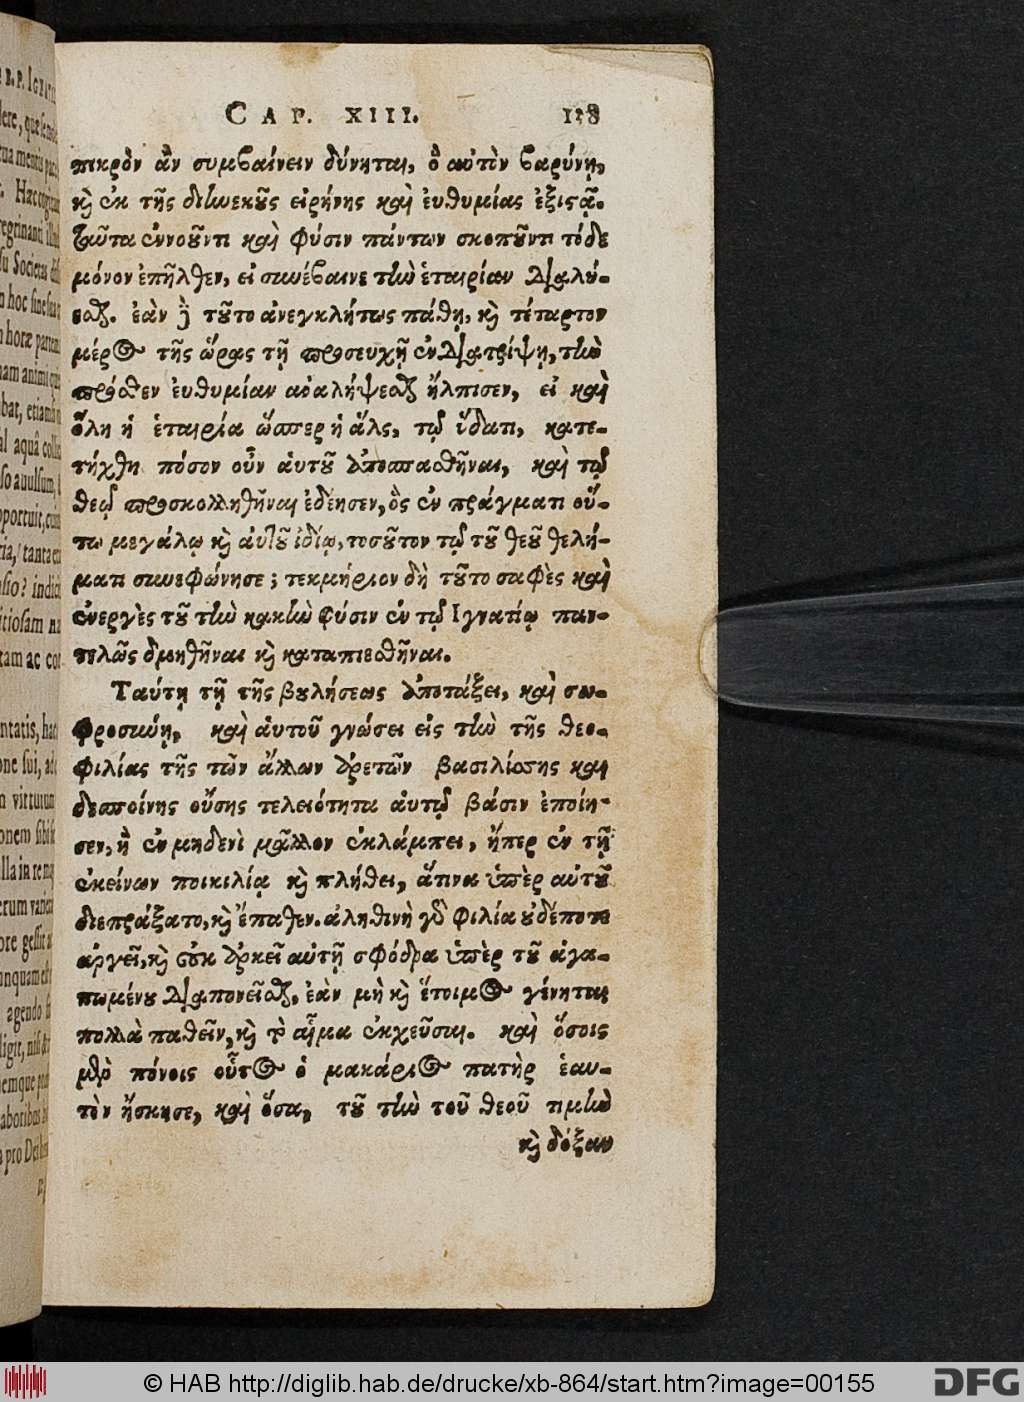 CAP. XIII. 118
πικρὸν ἂν συμβαίνειν δύνηται, ὃ αὐτὸν βαρύνῃ,
κὶ ἐκ τῆς διηνεκοῦς εἰρήνης καὶ ἐυθυμίας ἐξιστᾷ.
Ταῦτα ἐννοοῦντι καὶ φύσιν πάντων σκοποῦντι τόδε
μόνον ἐπῆλθεν, εἰ συνέβαινε τὴν ἑταιρίαν διαλύ-
εσθαι. ἐὰν δὲ τοῦτο ἀνεγκλήτως πάθῃ, κὶ τέταρτον
μέρος τῆς ὥρας τῇ προσευχῇ ἐνδιατρίψῃ, τὴν
πρόσθεν ἐυθυμίαν ἀναλήψεσθαι ἤλπισεν, εἰ καὶ
ὅλη ἡ ἑταιρία ὥσπερ ἡ ἅλς, τῷ ὕδατι, κατε-
τήχθη πόσον οὖν ἀυτοῦ ἀποσπασθῆναι, καὶ τῷ
θεῷ προσκολληθῆναι ἐδέησεν, ὃς ἐν πράγματι οὕ-
τω μεγάλῳ κὶ ἀυτοῦ ἰδίῳ, τοσοῦτον τῷ τοῦ θεοῦ θελή-
ματι συνεφώνησε; τεκμήριον δὴ τοῦτο σαφὲς καὶ
ἐνεργὲς τοῦ τὴν κακὴν φύσιν ἐν τῷ Ιγνατίῳ παν-
τελῶς δμηθῆναι κὶ καταπιεσθῆναι.
Ταύτῃ τῇ τῆς βουλήσεως ἀποτάξει, καὶ σω-
φροσύνῃ, καὶ ἀυτοῦ γνώσει εἰς τὴν τῆς θεο-
φιλίας τῆς τῶν ἄλλων ἀρετῶν βασιλίσσης καὶ
δεσποίνης οὔσης τελειότητα ἀυτῷ βάσιν ἐποίη-
σεν, ἣ ἐν μηδενὶ μᾶλλον ἐκλάμπει, ἤπερ ἐν τῇ
ἐκείνων ποικιλίᾳ κὶ πλήθει, ἅτινα ὑπὲρ αὐτοῦ
διεπράξατο, κὶ ἔπαθεν. ἀληθινὴ γὰρ φιλία οὐδέποτε
ἀργεῖ, κὶ οὐκ ἀρκεῖ αὐτῇ σφόδρα ὑπὲρ τοῦ ἀγα-
πωμένου διαπονεῖσθαι, ἐὰν μὴ κὶ ἕτοιμος γένηται
πολλὰ παθεῖν, κὶ τὸ αἷμα ἐκχεῦσαι. καὶ ὅσοις
μὲν πόνοις οὗτος ὁ μακάριος πατὴρ ἑαυ-
τὸν ἤσκησε, καὶ ὅσα, τοῦ τὴν τοῦ θεοῦ τιμὴν
κὶ δόξαν
© HAB http://diglib.hab.de/drucke/xb-864/start.htm?image=00155
DFG